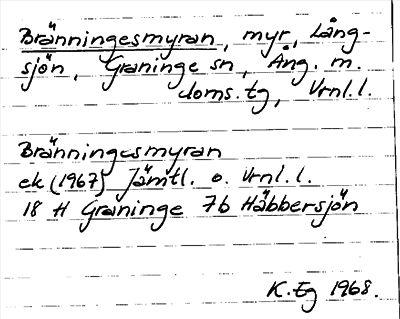 Bränningesmyran, myr, Lång-
sjön, Graninge sn, Ång. m.
doms.tg, Vrnl.l.
Bränningesmyran
ek (1967) Jämtl. o. Vrnl.l.
18 H Graninge 7b Häbbersjön
K.Eg 1968.